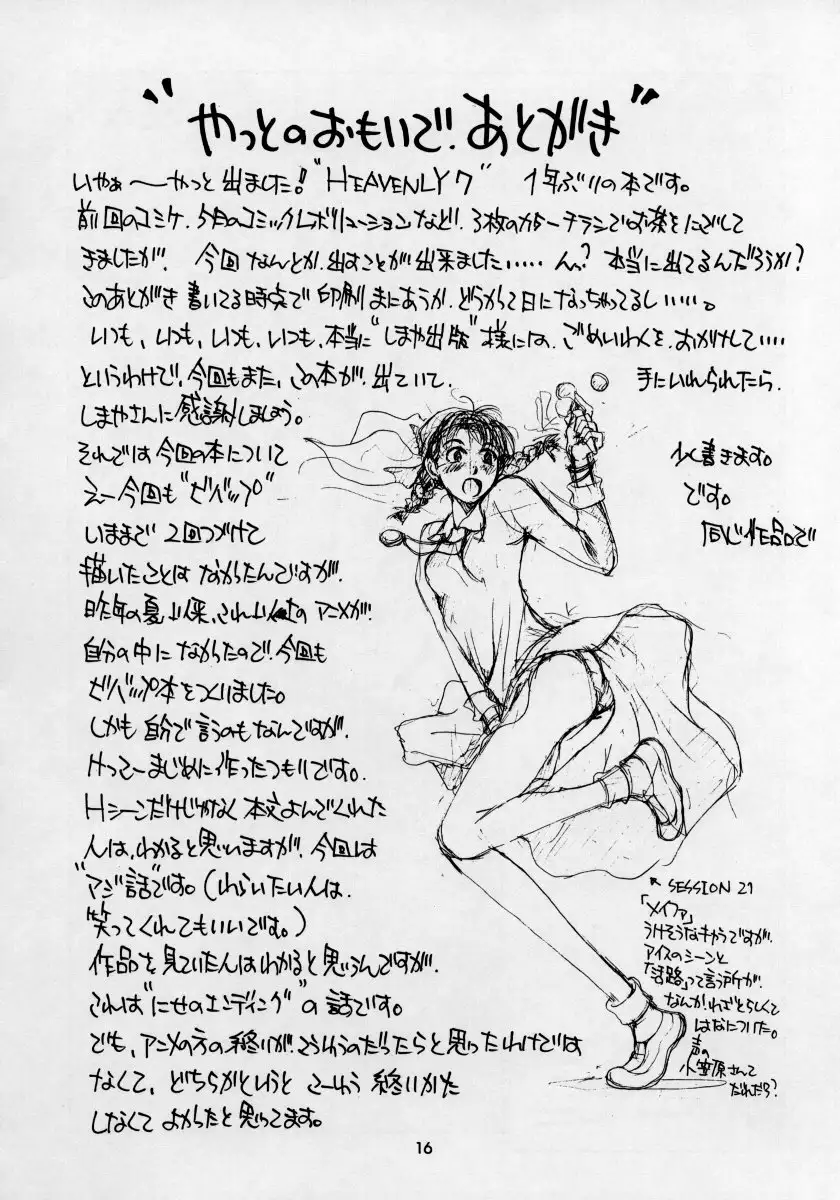 "やっとのおもいで!あとがき"
いやぁ〜やっと出ました!"HEAVENLY7" 1年ぶりの本です。
前回のコミケ、5月のコミックレボリューションなど、3枚のカラーチラシでお茶をにごして
きましたが、今回なんとか、出すことが出来ました……ん?本当に出てるんだろうか?
このあとがき書いてる時点で印刷まにあうか、どうかって日になっちゃってるし……。
いつも、いつも、いつも、いつも、本当に"しまや出版"様には、ごめいわくを、おかけして……
というわけで、今回もまた、この本が、出ていて、手にいれられたら、
しまやさんに感謝しましょう。
それでは今回の本について少く書きます。
えー今回も"ビバップ"です。
いままで2回つづけて同じ作品で
描いたことはなかったんですが、
昨年の夏以来、これ以上のアニメが、
自分の中になかったので、今回も
ビバップ本をつくりました。
しかも自分で言うのもなんですが、
けっこーまじめに作ったつもりです。
Hシーンだけじゃなく本文よんでくれた
人は、わかると思いますが、今回は
"マジ話"です。(わらいたい人は、
笑ってくれてもいいです。)
作品を見ていた人はわかると思うんですが、
これは"にせのエンディング"の話です。
でも、アニメの方の終りが、こういうのだったらと思ったわけでは
なくて、どちらかというとこーゆう終りかた
しなくてよかったと思ってます。
↖SESSION 21
「メイファ」
うけそうなキャラですが、
アイスのシーンと
「活路」って言う所が、
なんか、わざとらしくて
はなについた。
声の
小笠原さんて
だれだろ?
16